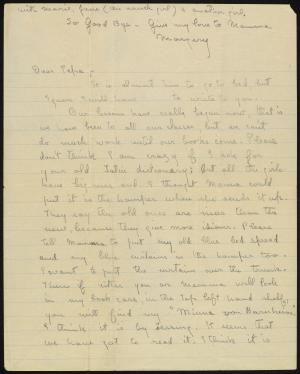 with Marie, Jane (the match girl) & another girl.
So Good Bye - Give my love to Mamma
Margery
Dear Papa,-
It is almost time to go to bed, but
I guess I will have to write to you.
Our lessons have really begun now, that is
we have been to all our classes but we can't
do much work until our books come. Please
don't think I am crazy if I ask for
your old Latin dictionary; but all the girls
have big ones and I thought Mamma could
put it in the hamper when she sends it up.
They say the old ones are nicer than the
new, because they give more idioms. Please
tell Mamma to put my old blue bed spread
and my blue curtains in the hamper too.
I want to put the curtain over the trunk.
Then if either you or Mamma will look
in my book case, in the top left hand shelf,
you will find my "Minna von Barnhelm"
I think it is by Lessing. It seems that
we have got to read it. I think it is